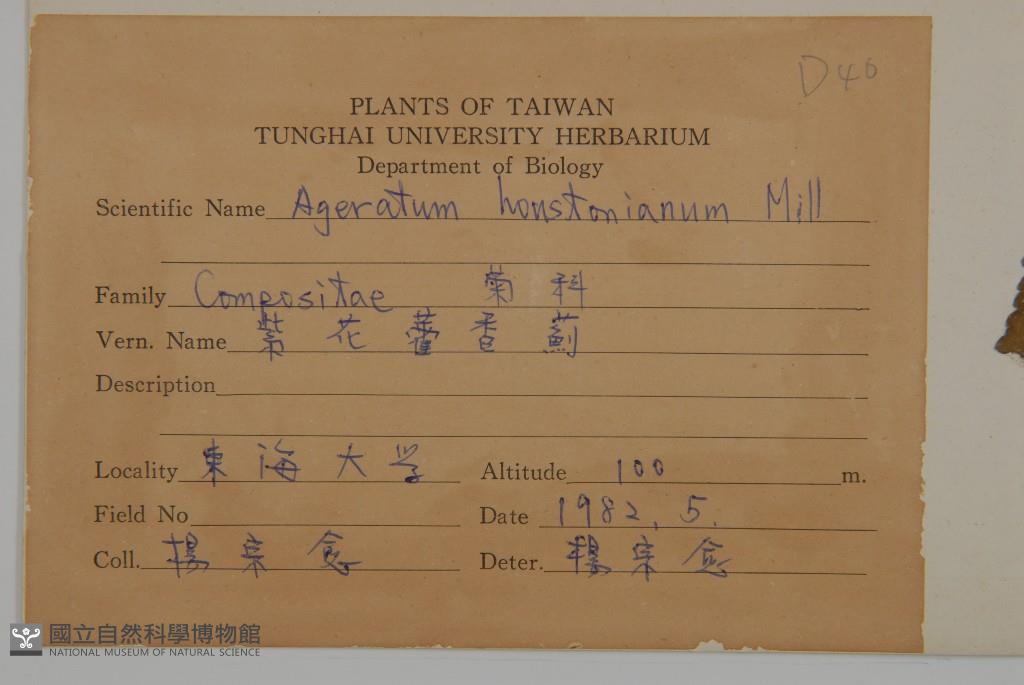 D40
PLANTS OF TAIWAN
TUNGHAI UNIVERSITY HERBARIUM
Department of Biology
Scientific Name Ageratum houstonianum Mill
Family Compositae 菊科
Vern. Name 紫花藿香薊
Description
Locality 東海大学 Altitude 100 m.
Field No Date 1982. 5.
Coll. 楊宗愈 Deter. 楊宗愈
國立自然科學博物館
NATIONAL MUSEUM OF NATURAL SCIENCE